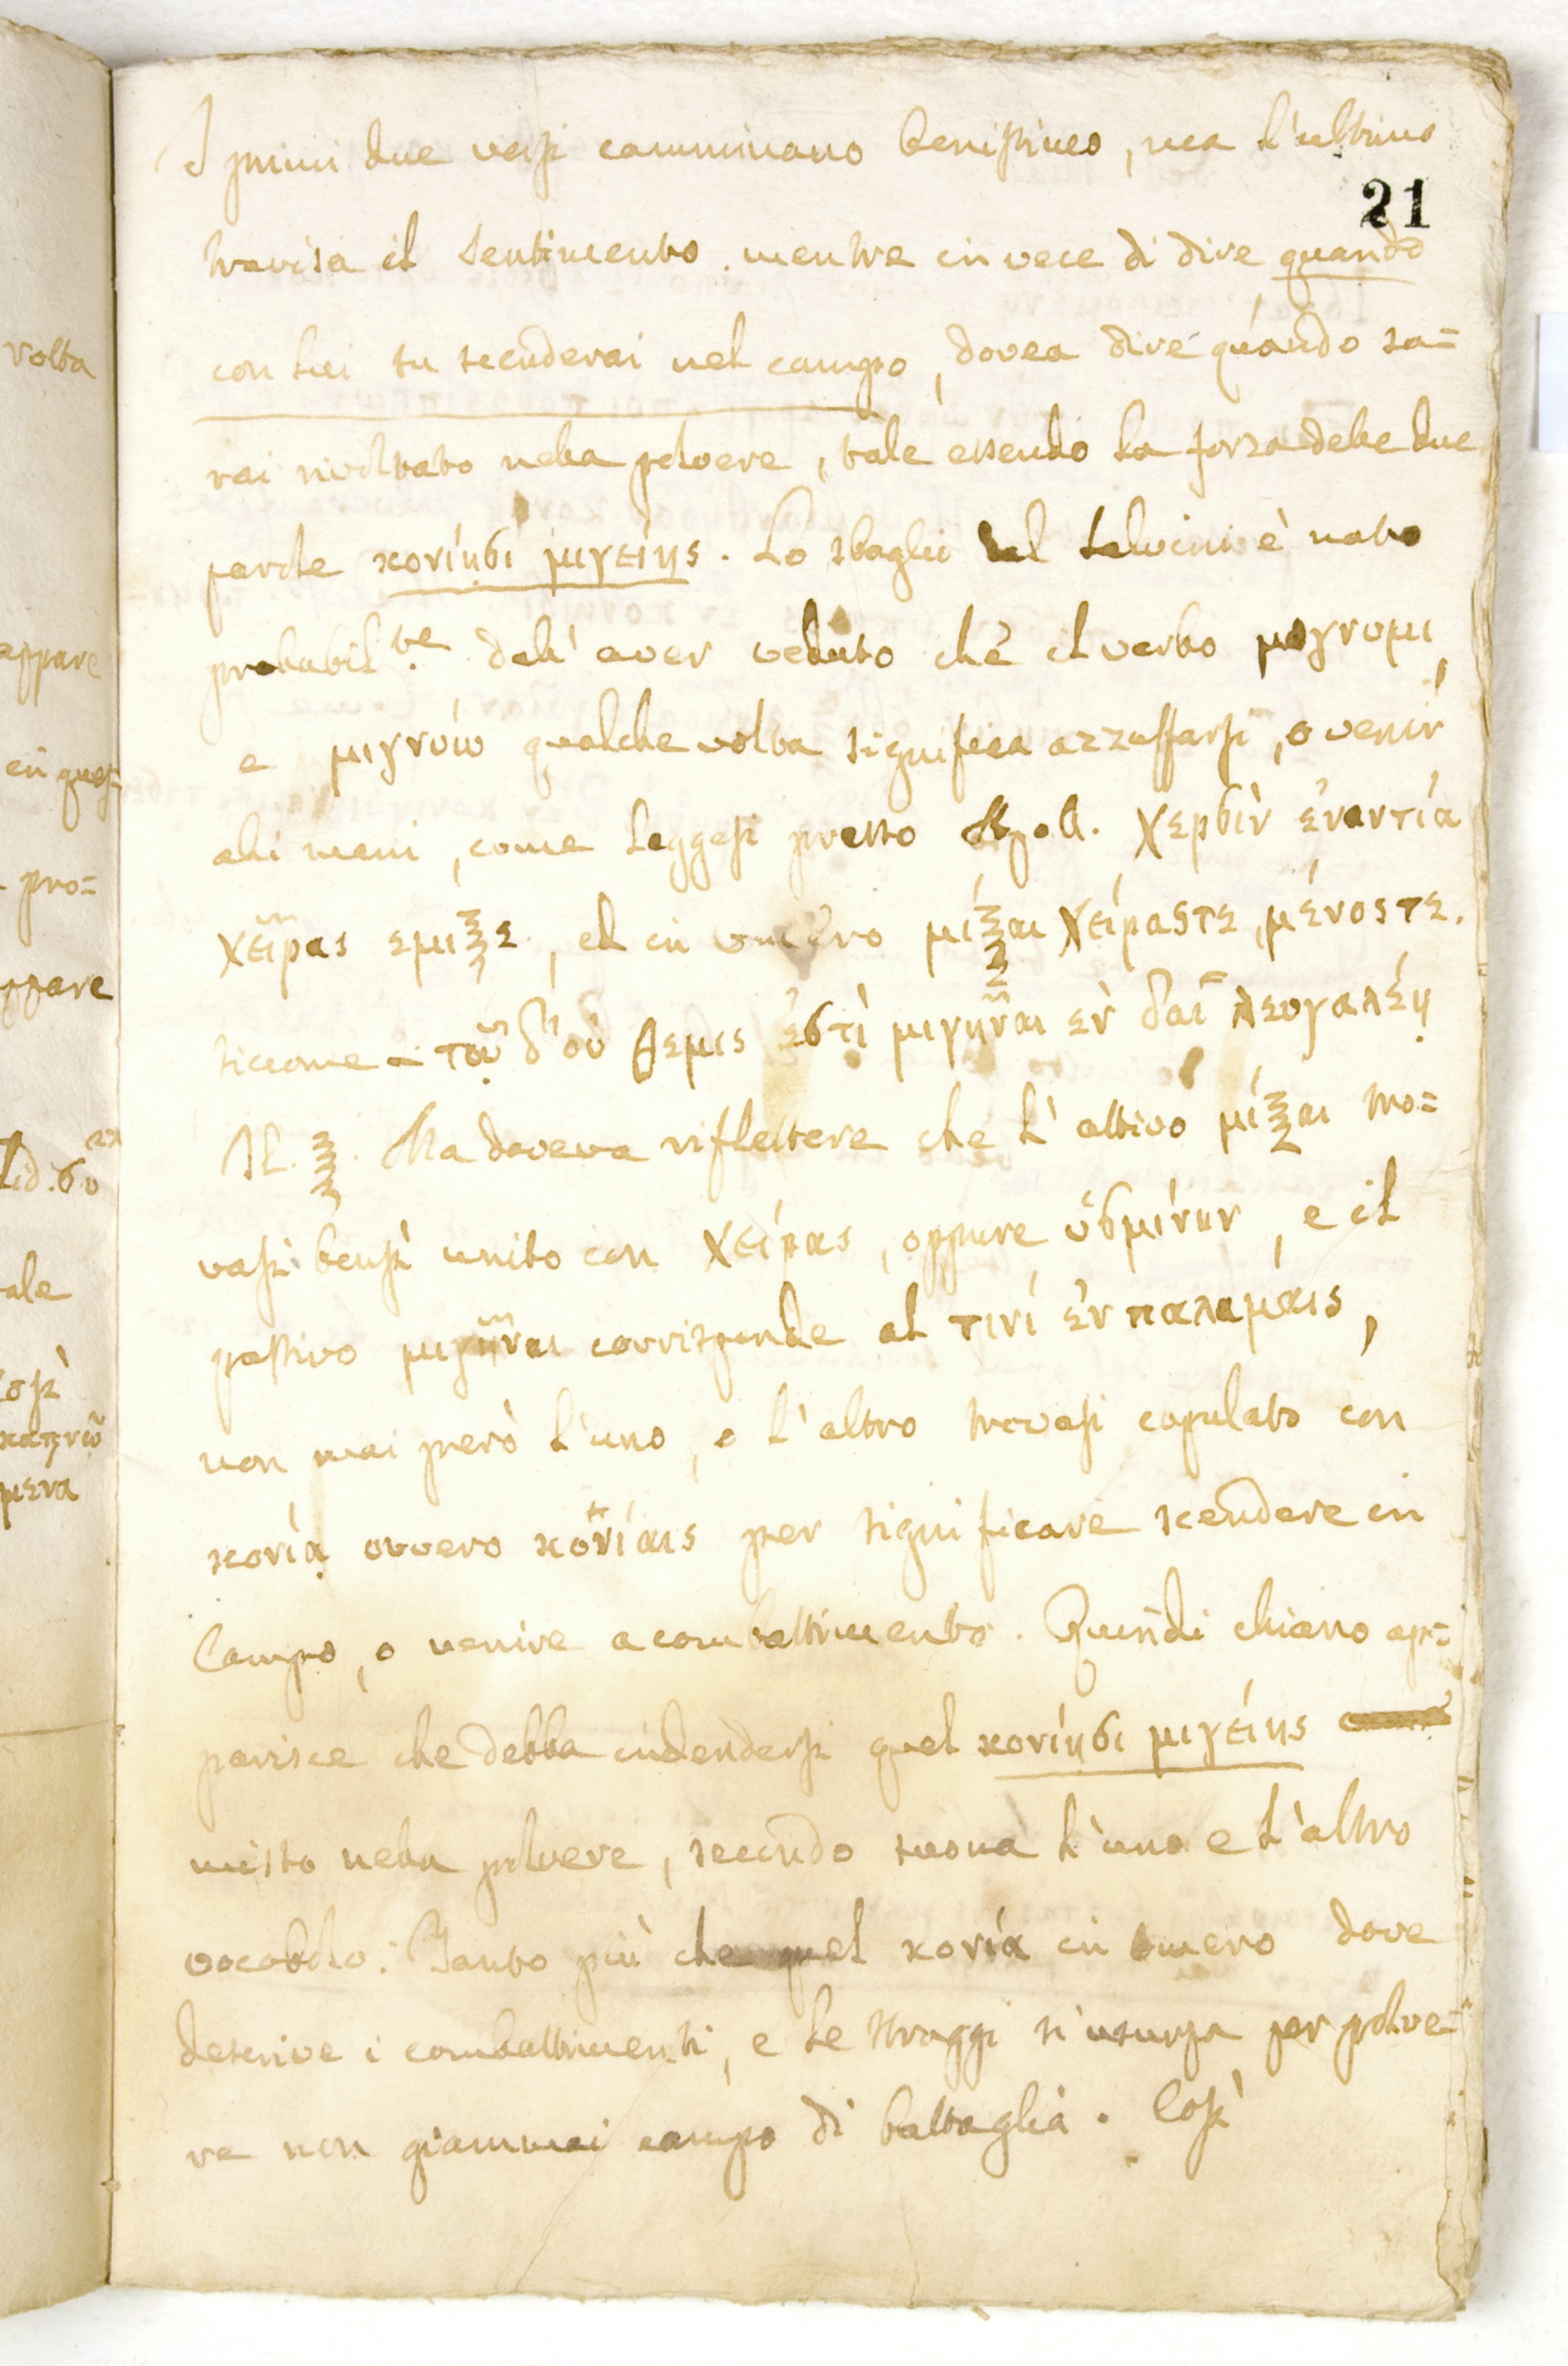 I primi due versi camminano benissimo, ma l'ultimo
21
travisa il sentimento. mentre in vece di dire quando
con lui tu scenderai nel campo, dovea dire quando sa=
rai rivoltato nella polvere, tale essendo la forza delle due
parole κονίησι μιγείης. Lo sbaglio del Salvini è nato
probabil.te dall'aver veduto che il verbo μιγνυμι,
e μιγνύω qualche volta significa azzuffarsi, o venir
alli mani, come leggesi presso Apoll. χερσὶν ἐναντία
χεῖρας εμιξε, ed in Omero μίξαι χείραςτε, μένοςτε.
siccome - τοῦ δ' οὐ θεμις ἐστὶ μιγῆναι ἐν δαῒ λευγαλέῃ
Il. ξ. Ma doveva riflettere che l'attivo μίξαι tro=
vasi bensì unito con χείρας, oppure ὑσμίνην, e il
passivo μιγῆναι corrisponde al τινί ἐν παλαμάις,
non mai però l'uno, o l'altro trovasi copulato con
κονίᾳ ovvero κονίαις per significare scendere in
Campo, o venire a combattimento. Quindi chiaro ap=
parisce che debba intendersi quel κονίησι μιγείης
misto nella polvere, secondo suona l'uno e l'altro
vocabolo: Tanto più che quel κονία in Omero dove
descrive i combattimenti, e le straggi s'usurpa per polve=
re non giammai campo di battaglia. Così
volta
appare
in ques=
pro=
ppare
ale
Così
καπνῷ
μενα